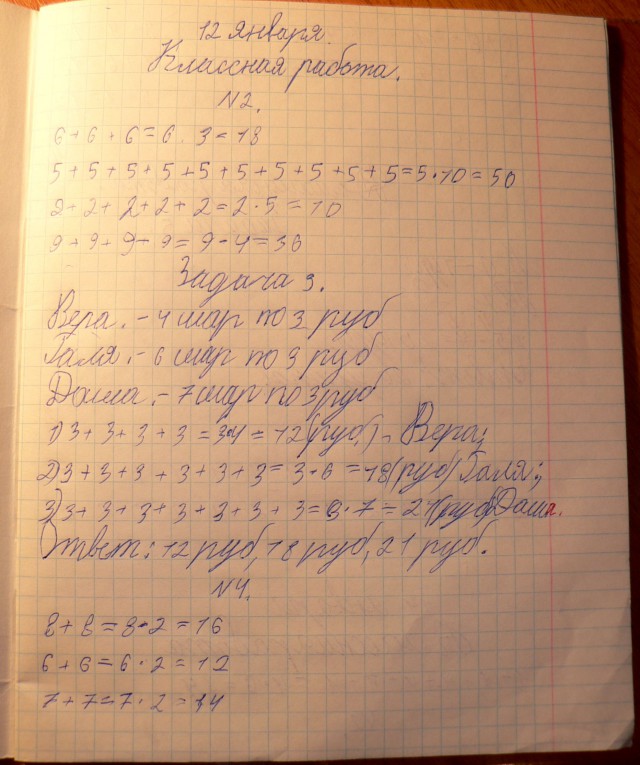 12 января.
Классная работа.
N2.
6+6+6=6·3=18
5+5+5+5+5+5+5+5+5+5=5·10=50
2+2+2+2+2=2·5=10
9+9+9+9=9·4=36
Задача 3.
Вера. - 4 шар по 3 руб
Галя. - 6 шар по 3 руб
Даша. - 7 шар по 3 руб
1) 3+3+3+3=3·4=12(руб.) - Вера;
2) 3+3+3+3+3+3=3·6=18(руб) Галя;
3) 3+3+3+3+3+3+3=3·7=21(руб) Даша.
Ответ: 12 руб, 18 руб, 21 руб.
N4.
8+8=8·2=16
6+6=6·2=12
7+7=7·2=14